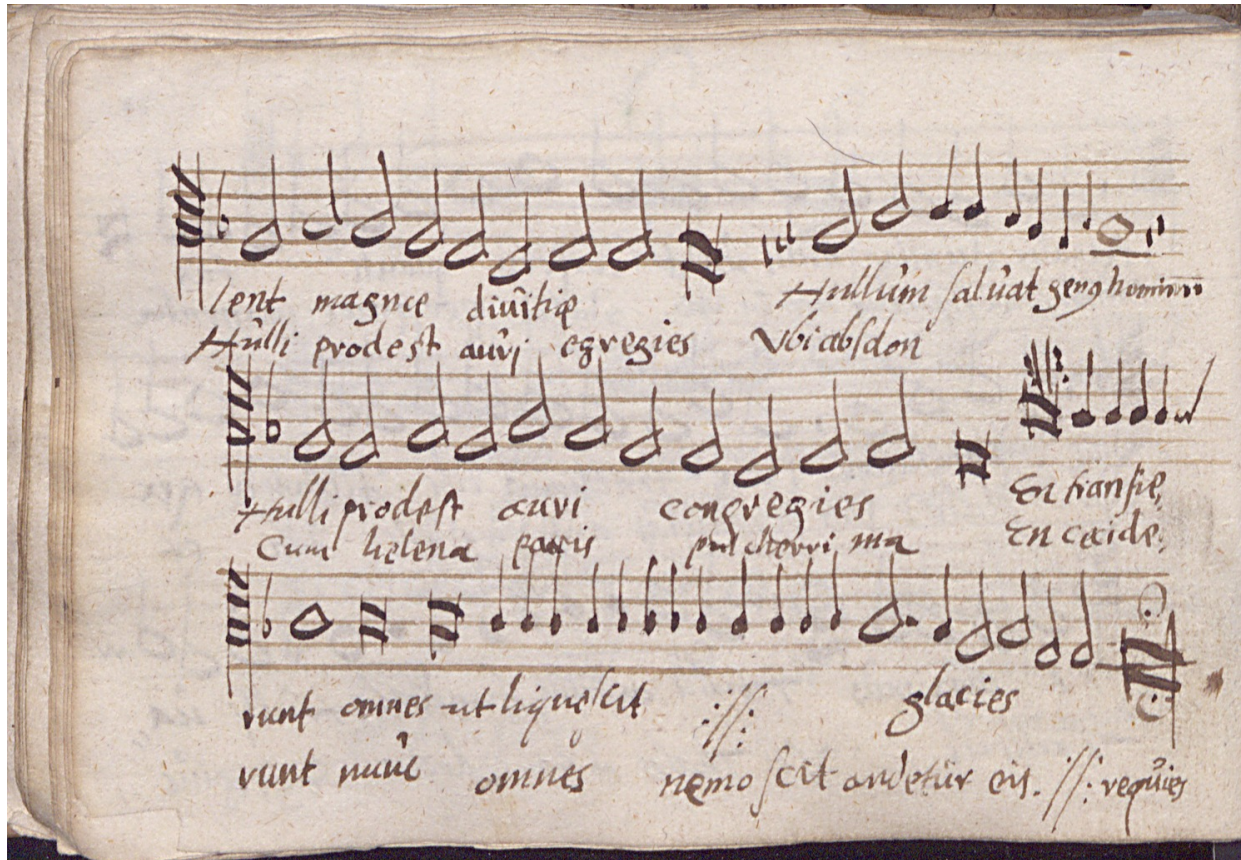 lent magnce divitię
Hullum salvat geng hominũ
Hulli prodest auri egregies Vbi absdon
Hulli prodest auri congregies En transie,
Cum helena paris pulcherri ma En ceide,
runt omnes ut liquescit :||: glacies
runt nunc omnes nemo scit an detur eis. :||: requies